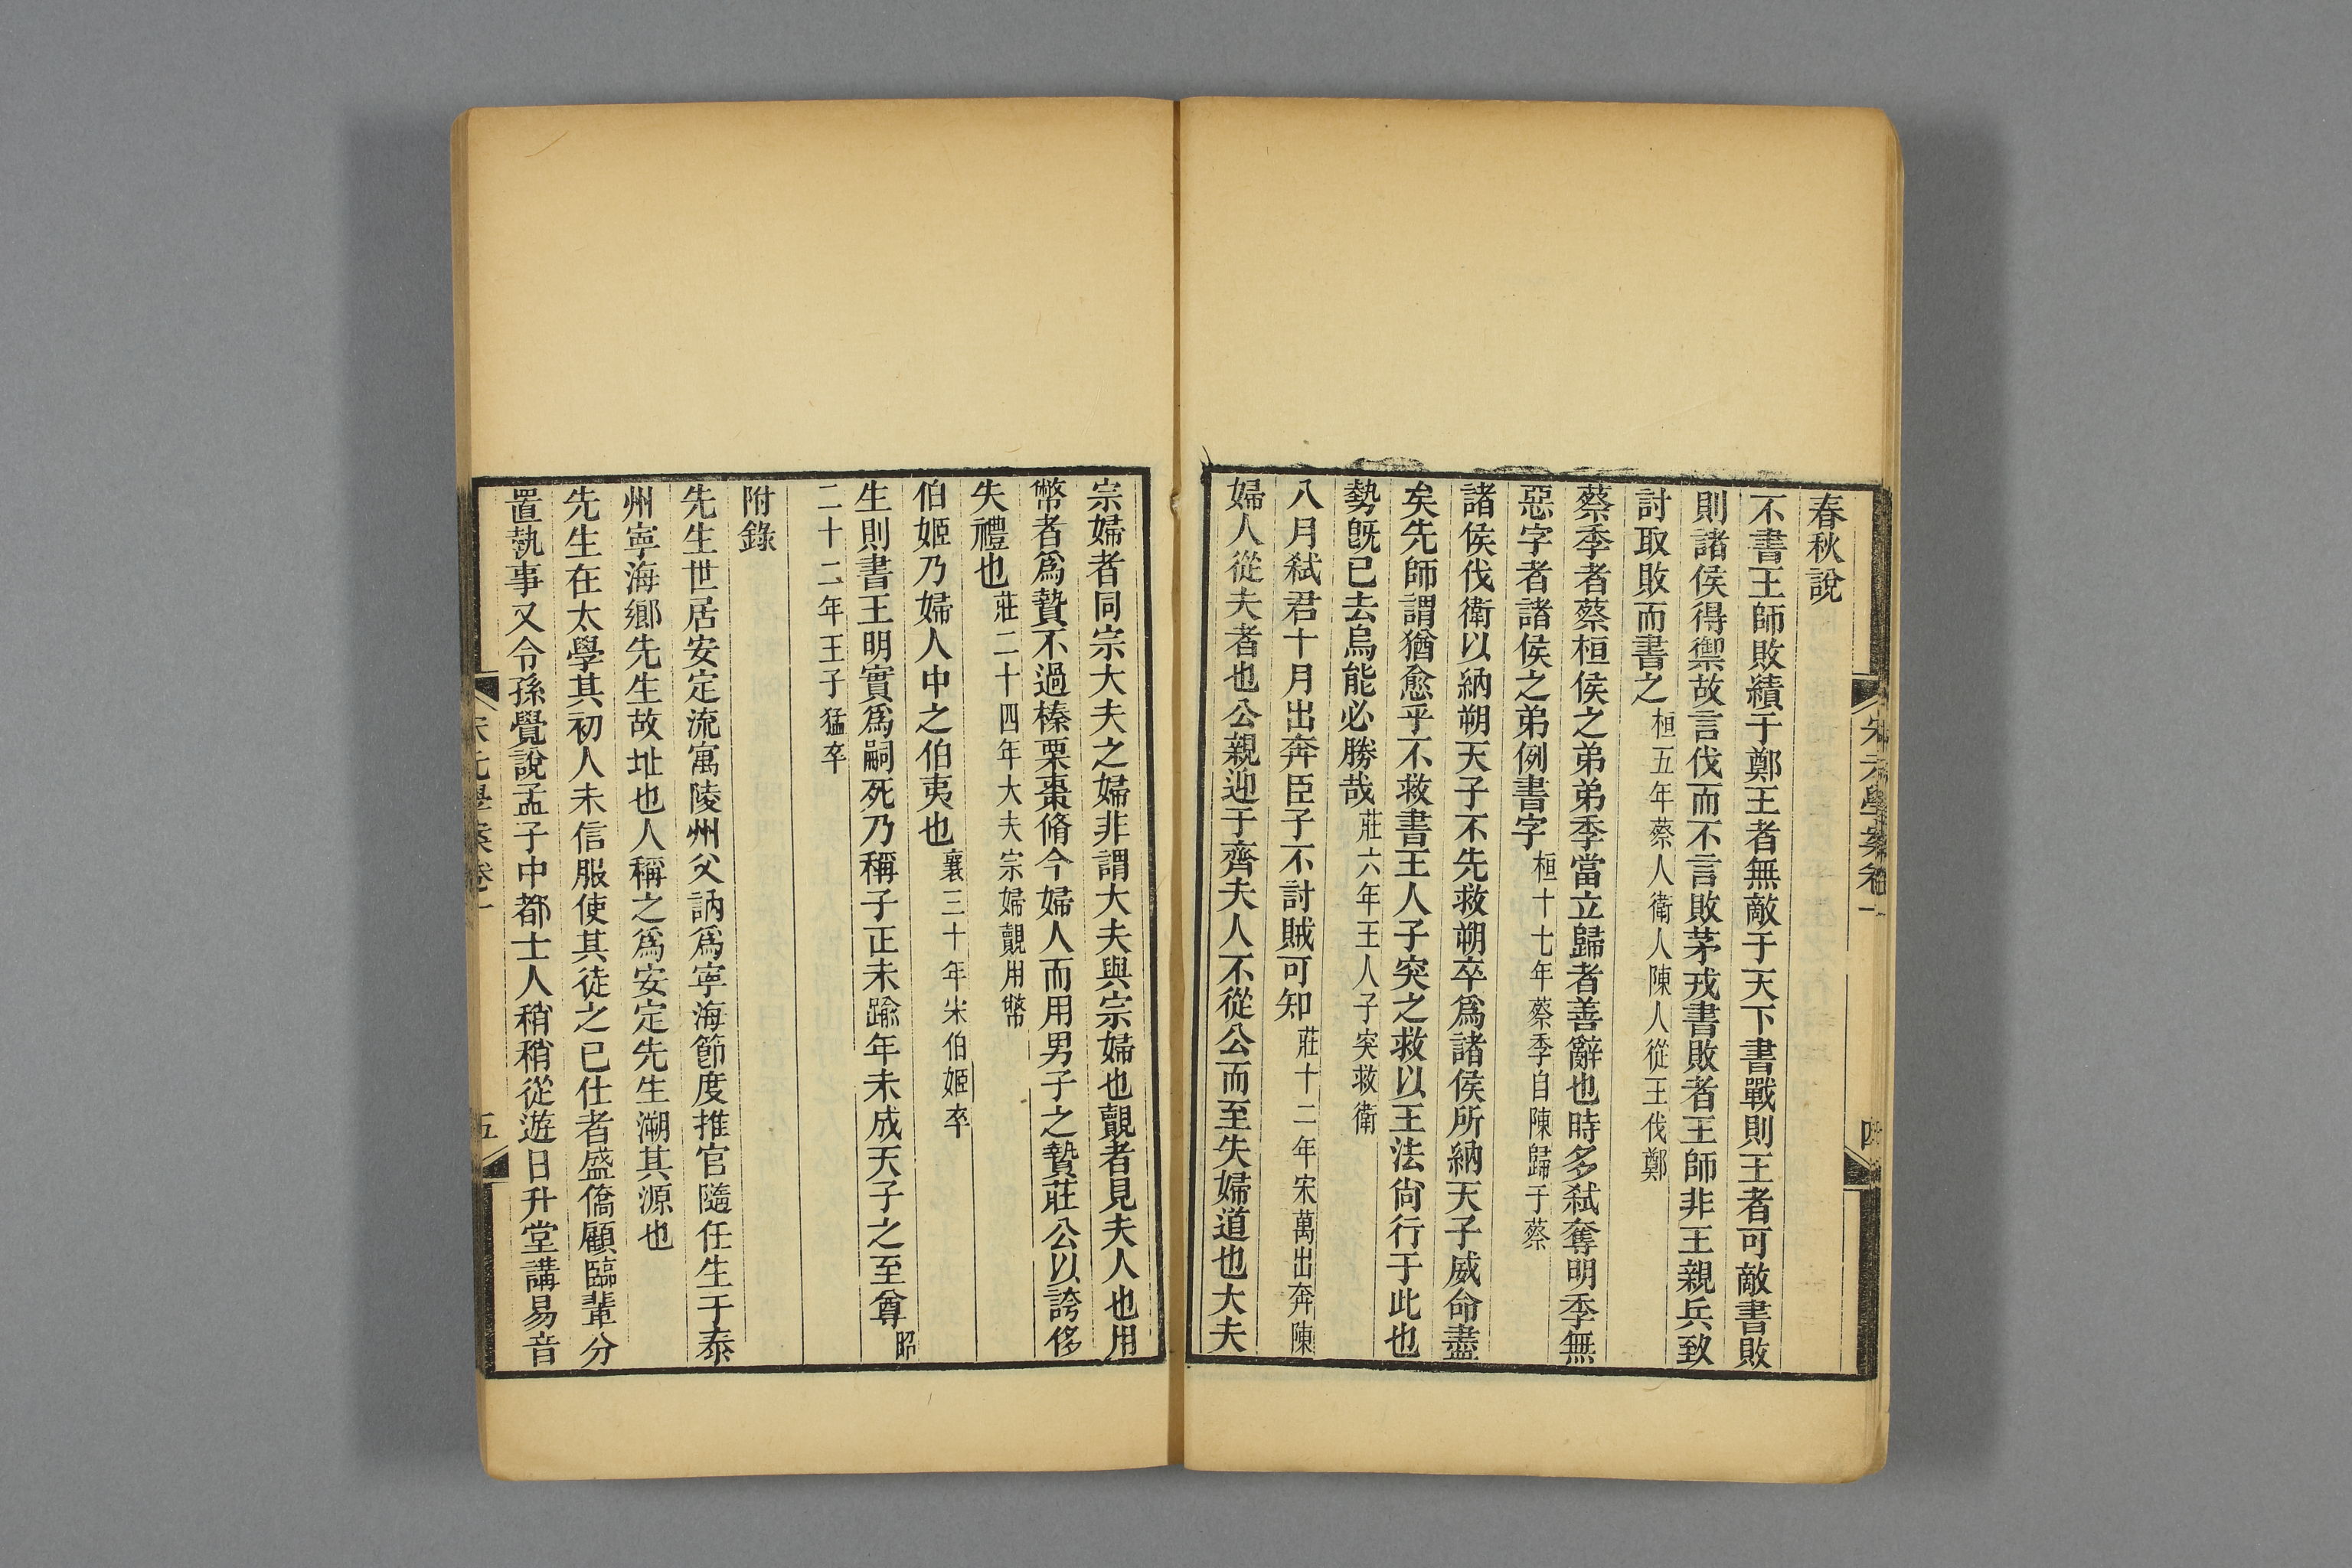 宋元學案卷一
四
春秋說
不書王師敗績于鄭王者無敵于天下書戰則王者可敵書敗
則諸侯得禦故言伐而不言敗茅戎書敗者王師非王親兵致
討取敗而書之桓五年蔡人衛人陳人從王伐鄭
蔡季者蔡桓侯之弟弟季當立歸者善辭也時多弑奪明季無
惡字者諸侯之弟例書字桓十七年蔡季自陳歸于蔡
諸侯伐衛以納朔天子不先救朔卒爲諸侯所納天子威命盡
矣先師謂猶愈乎不救書王人子突之救以王法尙行于此也
勢旣已去烏能必勝哉莊六年王人子突救衛
八月弑君十月出奔臣子不討賊可知莊十二年宋萬出奔陳
婦人從夫者也公親迎于齊夫人不從公而至失婦道也大夫
宗婦者同宗大夫之婦非謂大夫與宗婦也覿者見夫人也用
幣者爲贄不過榛栗棗脩今婦人而用男子之贄莊公以誇侈
失禮也莊二十四年大夫宗婦覿用幣
伯姬乃婦人中之伯夷也襄三十年宋伯姬卒
生則書王明實爲嗣死乃稱子正未踰年未成天子之至尊昭
二十二年王子猛卒
附錄
先生世居安定流寓陵州父訥爲寧海節度推官隨任生于泰
州寧海鄉先生故址也人稱之爲安定先生溯其源也
先生在太學其初人未信服使其徒之已仕者盛僑顧臨輩分
置執事又令孫覺說孟子中都士人稍稍從遊日升堂講易音
宋元學案卷一
五